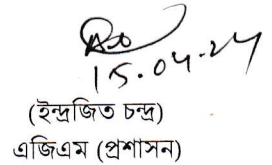 15.04.24
(ইন্দ্রজিত চন্দ্র)
এজিএম (প্রশাসন)